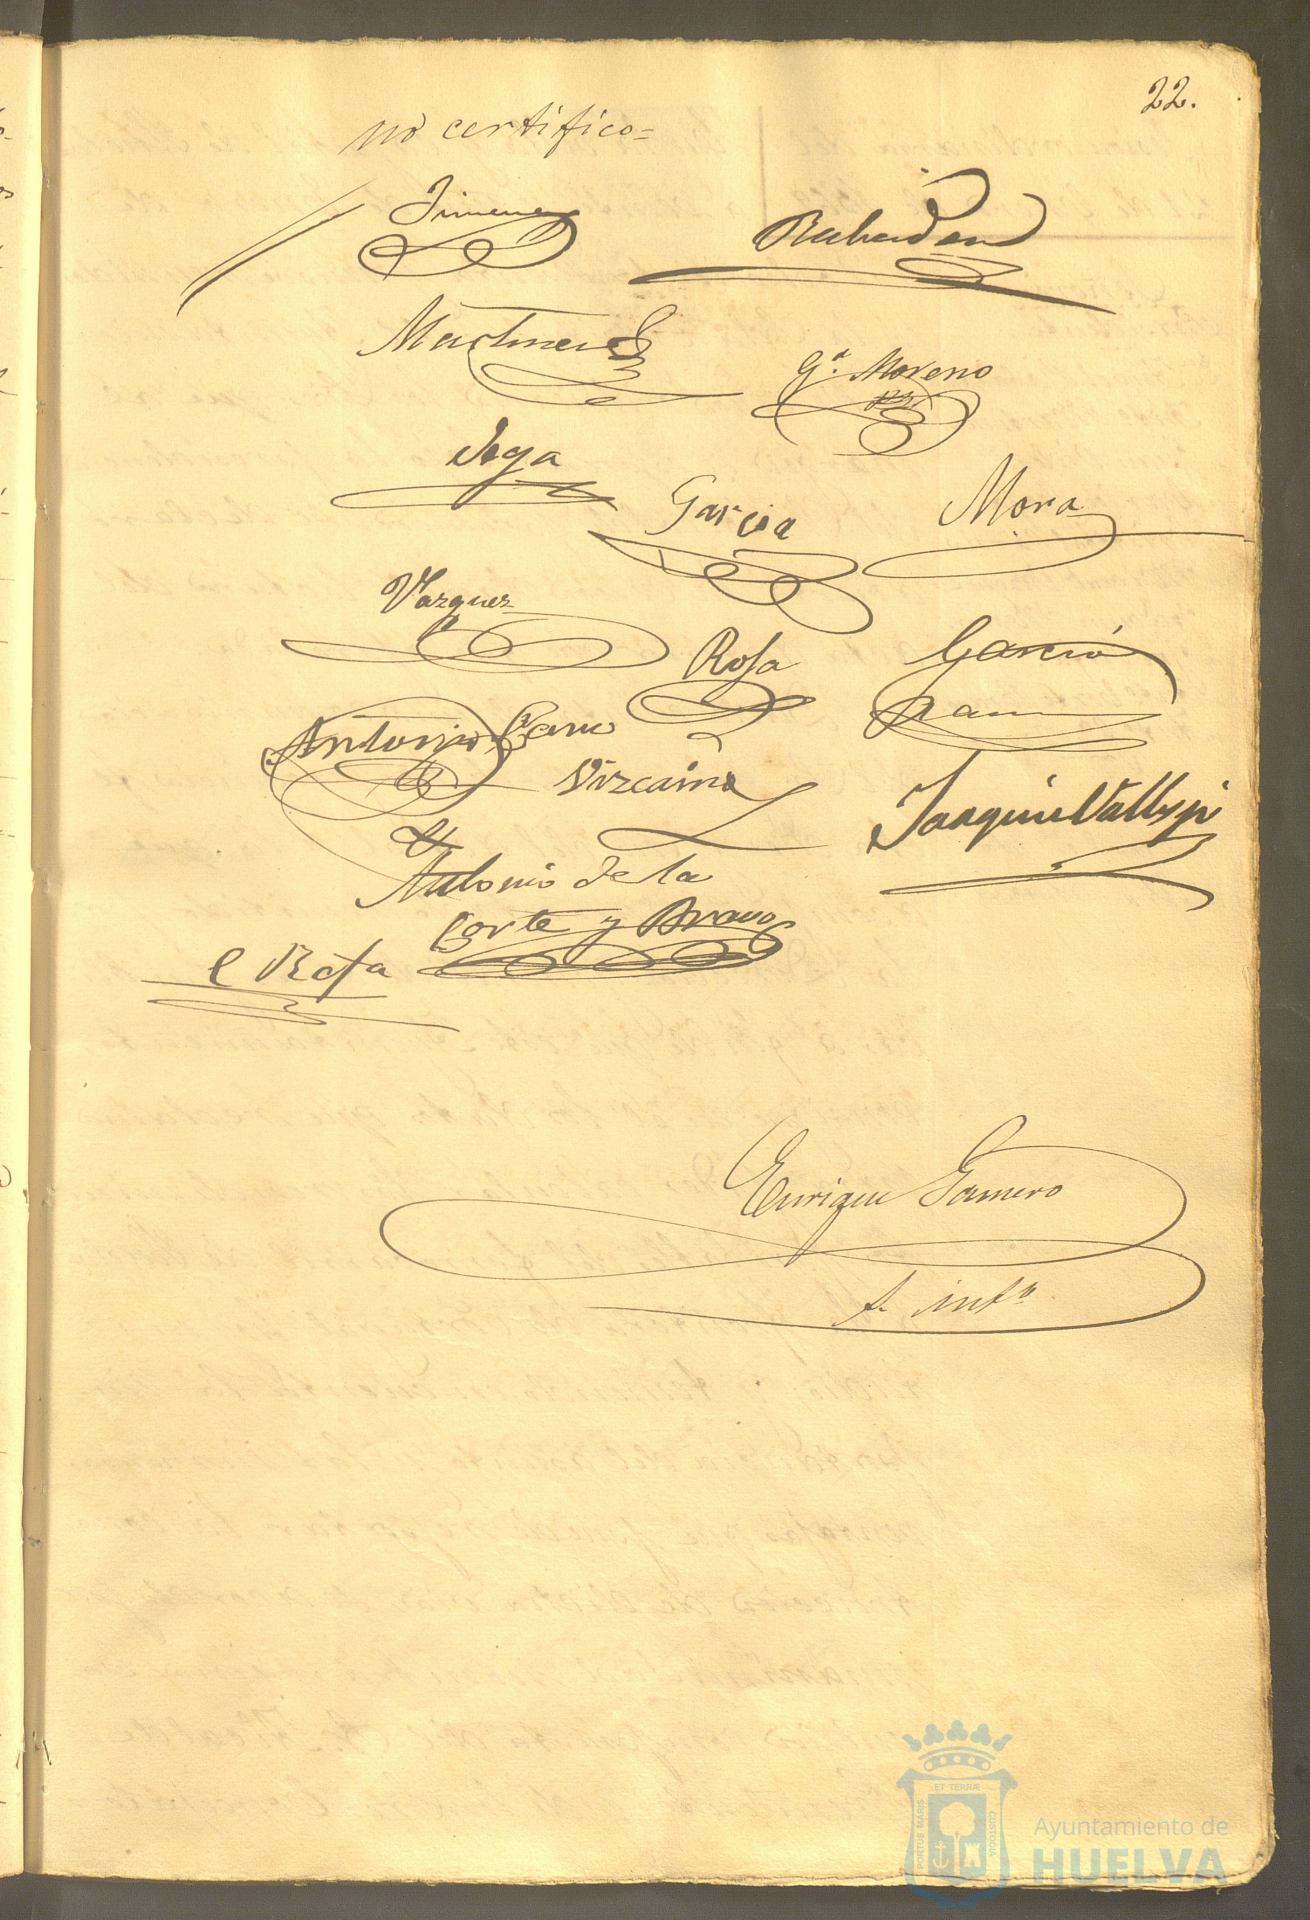 22.
no certifico=
Jimenez
Rabadan
Martinez
Gª. Moreno
Vega
Garcia
Mora
Vazquez
Rosa
Garcia
Ramos
Antonio Cano
Vizcaino
Joaquin
Antonio de la
Corte y Bravo
C Rofa
Enrique Gamero
s. intº
PORTUS MARIS
ET TERRÆ
CUSTODIA
Ayuntamiento de
HUELVA